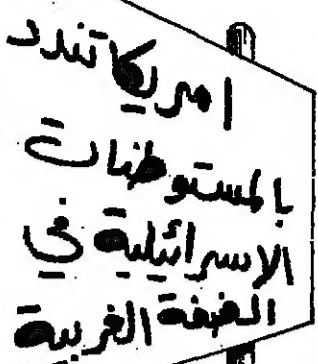 امريكا تندد
بالمستوطنات
الاسرائيلية في
الضفة الغربية